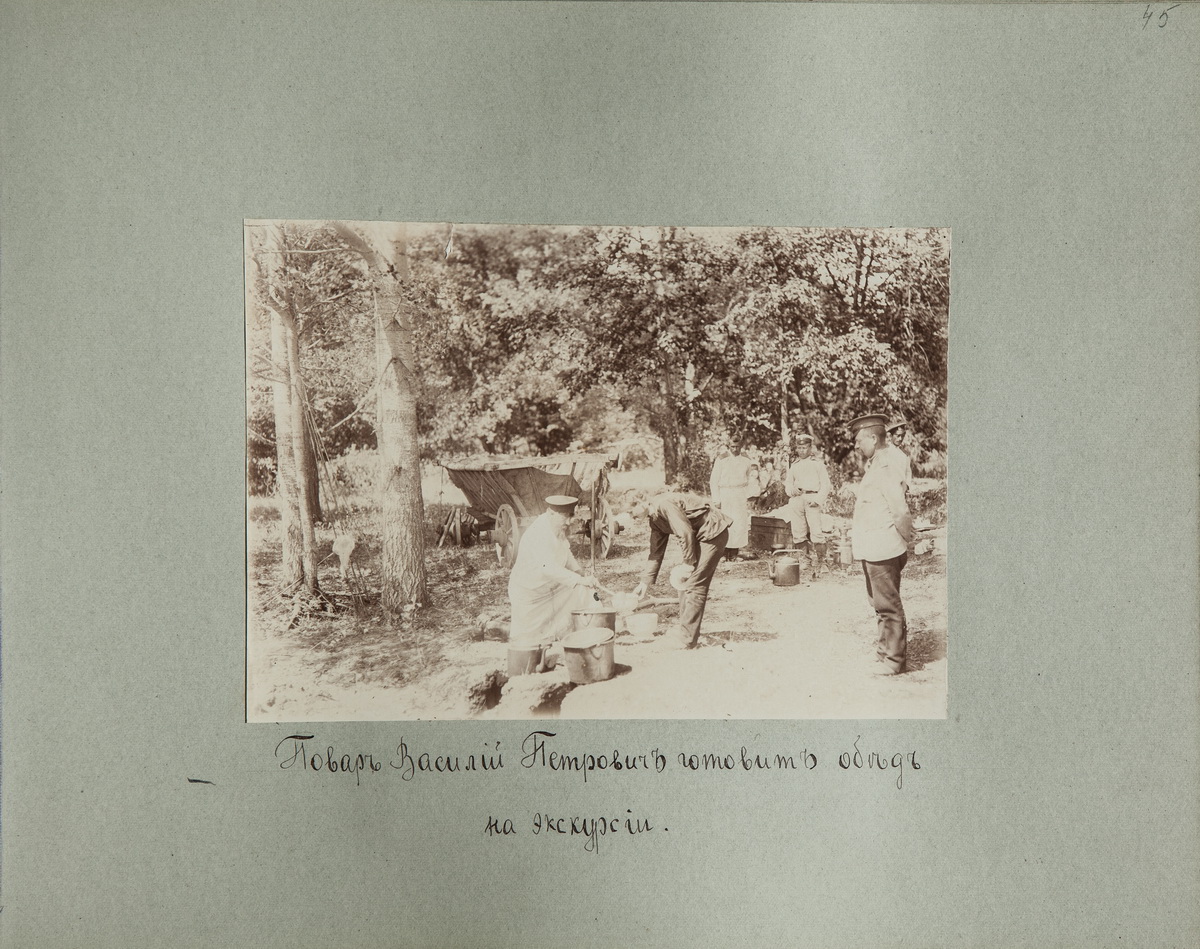 45
Поваръ Василій Петровичъ готовитъ обѣдъ
на экскурсіи.